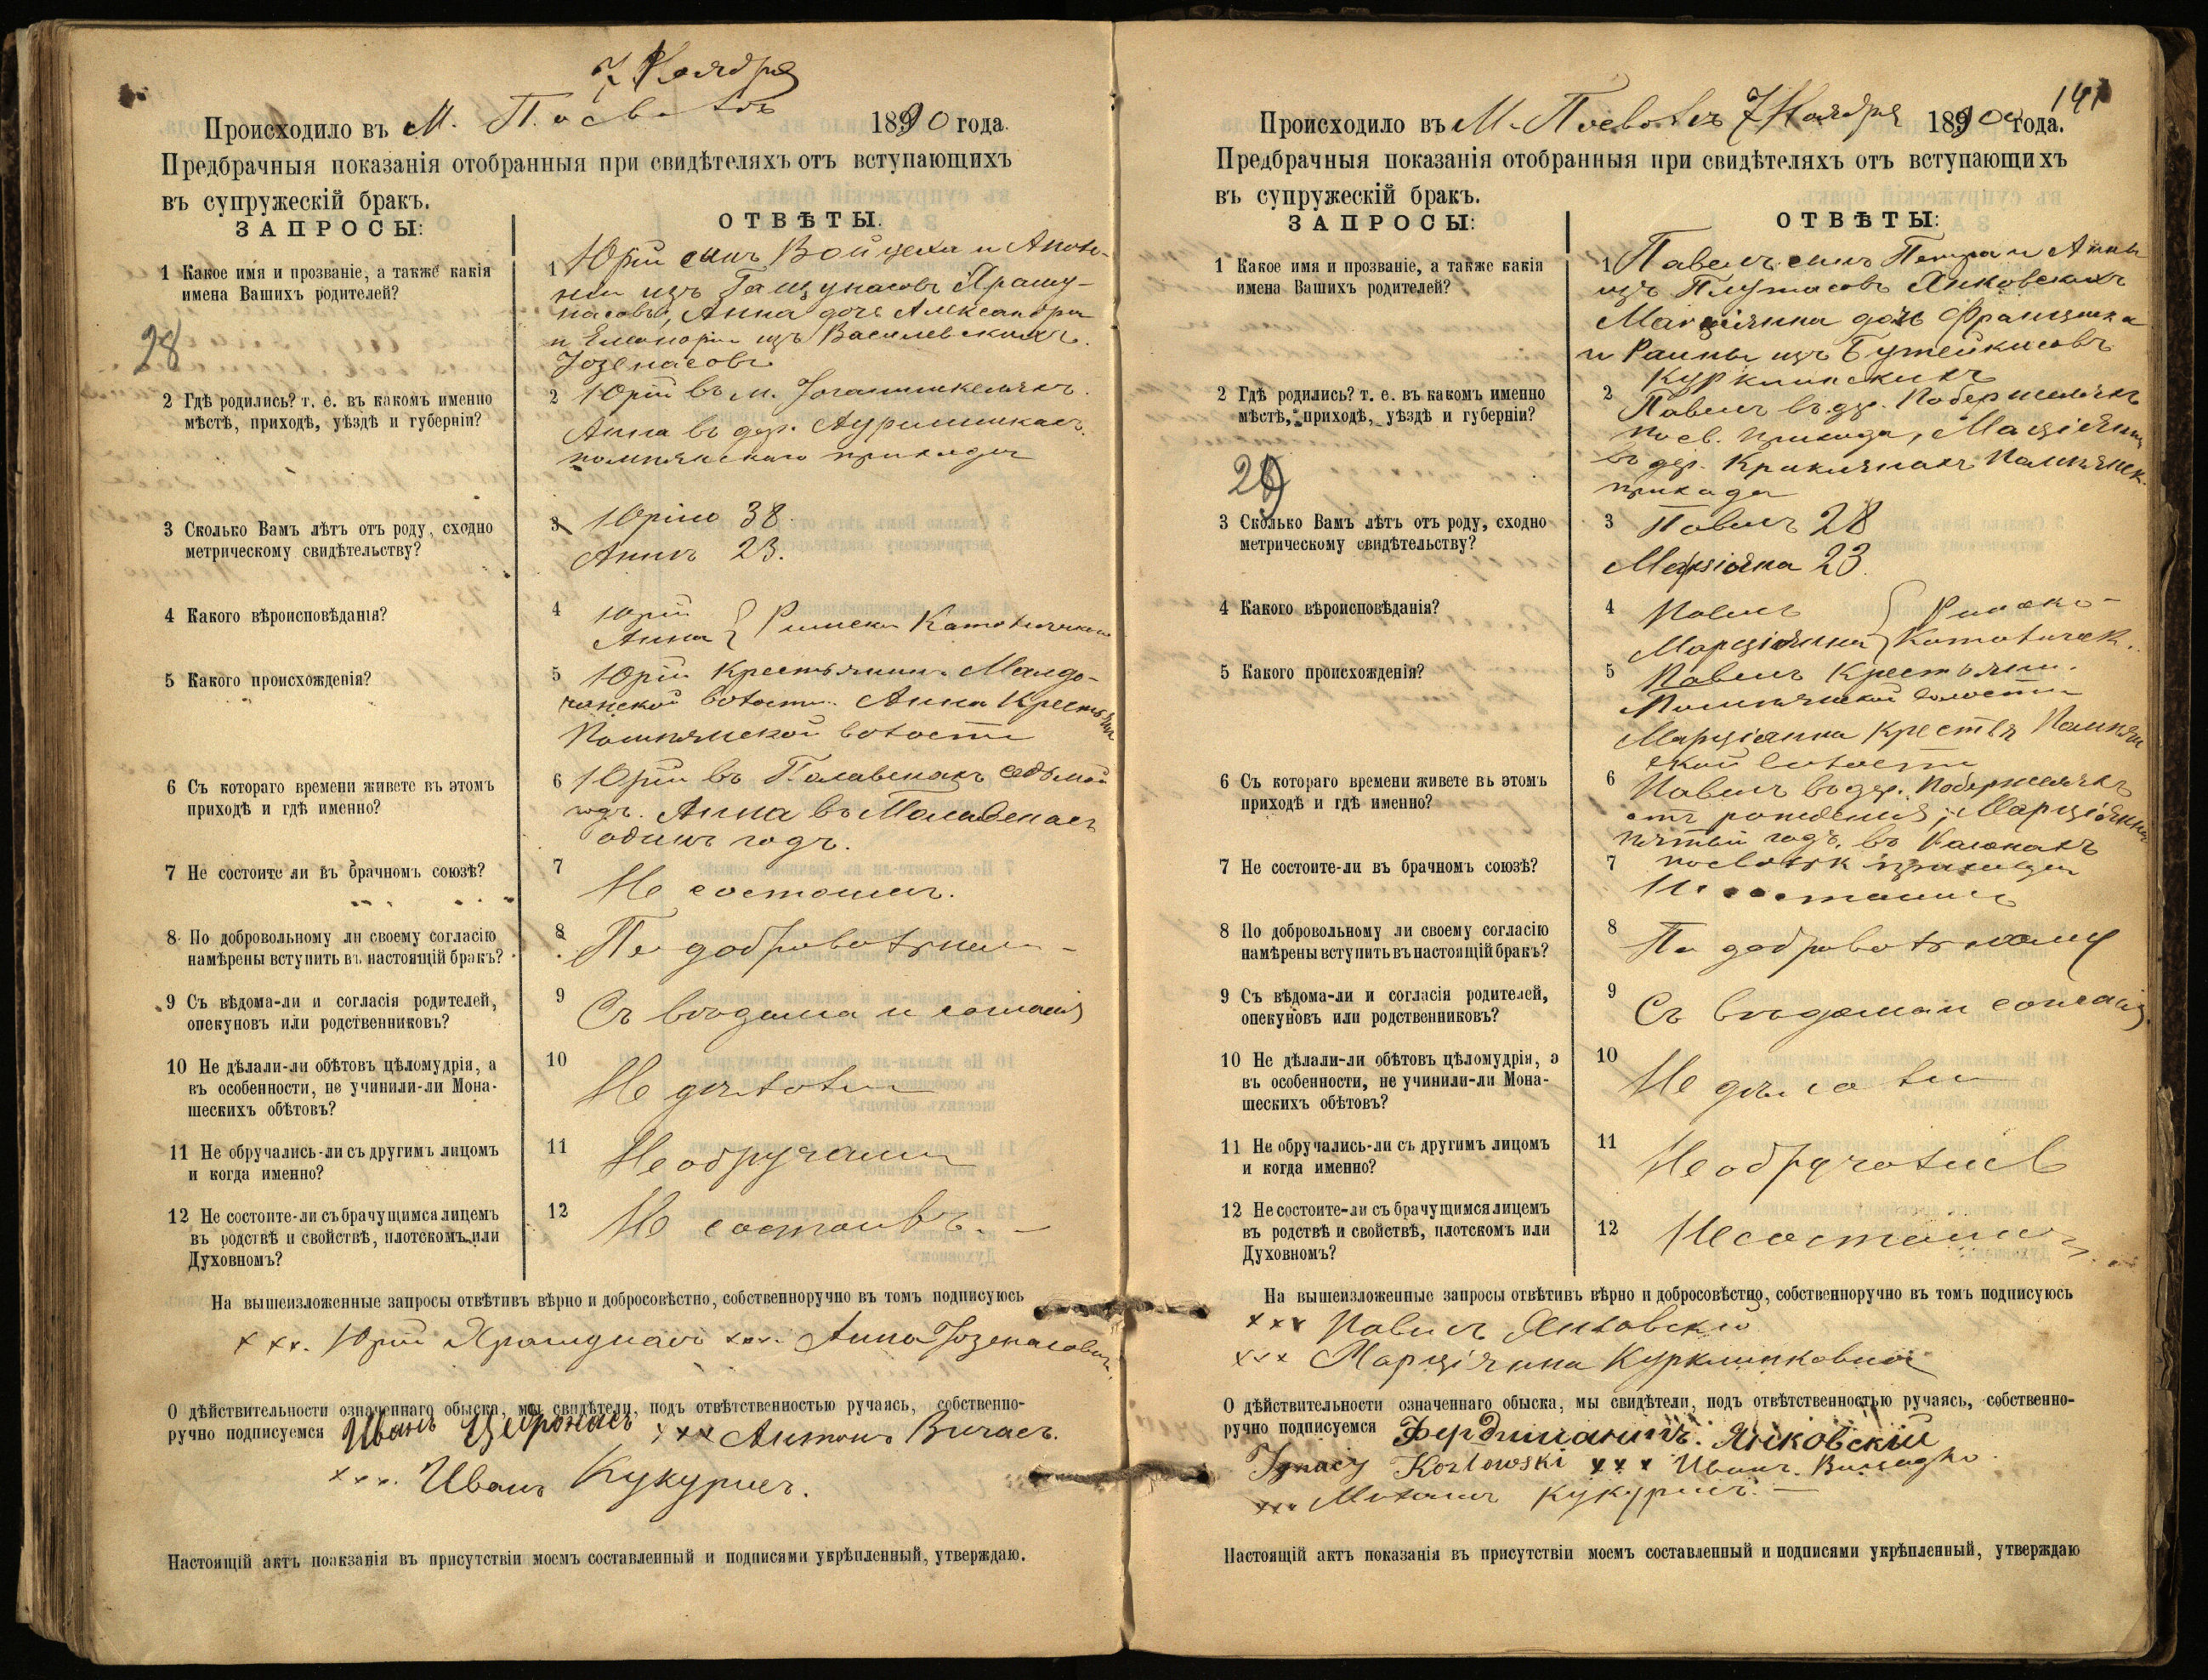 7 Ноября
Происходило въ М. Посволь 1890 года.
Предбрачныя показанія отобранныя при свидѣтеляхъ отъ вступающихъ
въ супружескій бракъ.
ЗАПРОСЫ:
ОТВѢТЫ.
1 Какое имя и прозваніе, а также какія
имена Вашихъ родителей?
1 Юрій сынъ Войцеха и
изъ
Анна дочь Александра
и изъ Василевскихъ
28
2 Гдѣ родились? т. е. въ какомъ именно
мѣстѣ, приходѣ, уѣздѣ и губерніи?
2 Юрій въ м. Іоганишкеляхъ.
Анна въ дер.
помпянскаго прихода
3 Сколько Вамъ лѣтъ отъ роду, сходно
метрическому свидѣтельству?
3 Юрію 38.
Аннѣ 23.
4 Какого вѣроисповѣданія?
4 Юрій
Анна } Римско Католическаго
5 Какого происхожденія?
5 Юрій Крестьянинъ
волости. Анна Крестьян
Помпянской волости
6 Съ котораго времени живете въ этомъ
приходѣ и гдѣ именно?
6 Юрій въ седьмой
годъ. Анна въ
одинъ годъ.
7 Не состоите ли въ брачномъ союзѣ?
7 Не состоимъ.
8 По добровольному ли своему согласію
намѣрены вступить въ настоящій бракъ?
8 По добровольному
9 Съ вѣдома-ли и согласія родителей,
опекуновъ или родственниковъ?
9 Съ вѣдома и согласія
10 Не дѣлали-ли обѣтовъ цѣломудрія, а
въ особенности, не учинили-ли Мона-
шескихъ обѣтовъ?
10 Не дѣлали
11 Не обручались-ли съ другимъ лицомъ
и когда именно?
11 Не обручались
12 Не состоите-ли съ брачущимся лицемъ
въ родствѣ и свойствѣ, плотскомъ или
Духовномъ?
12 Не состоимъ.
На вышеизложенные запросы отвѣтивъ вѣрно и добросовѣстно, собственноручно въ томъ подписуюсь
xxx. Юрій xxx. Анна
О дѣйствительности означеннаго обыска, мы свидѣтели, подъ отвѣтственностью ручаясь, собственно-
ручно подписуемся Иванъ xxx Антонъ
xxx. Иванъ Кукурисъ.
Настоящій актъ поакзанія въ присутствіи моемъ составленный и подписями укрѣпленный, утверждаю.
141
Происходило въ М. Посволь 7 Ноября 1890 года.
Предбрачныя показанія отобранныя при свидѣтеляхъ отъ вступающихъ
въ супружескій бракъ.
ЗАПРОСЫ:
ОТВѢТЫ:
1 Какое имя и прозваніе, а также какія
имена Вашихъ родителей?
1 Павелъ сынъ Петра и Анны
изъ Янковскихъ
Марціянна дочь Францишка
и изъ
2 Гдѣ родились? т. е. въ какомъ именно
мѣстѣ, приходѣ, уѣздѣ и губерніи?
2 Павелъ въ дер.
посв. прихода, Марціянна
въ дер. Помпянск.
прихода
29
3 Сколько Вамъ лѣтъ отъ роду, сходно
метрическому свидѣтельству?
3 Павелъ 28
Марціянна 23
4 Какого вѣроисповѣданія?
4 Павелъ
Марціянна } Римско-
Католическ.
5 Какого происхожденія?
5 Павелъ Крестьянин.
Помпянской волости
Марціянна Крестья Помпян
ской волости
6 Съ котораго времени живете въ этомъ
приходѣ и гдѣ именно?
6 Павелъ въ дер.
отъ рожденія, Марціянна
пятый годъ, въ
прихода
7 Не состоите-ли въ брачномъ союзѣ?
7 Не состоимъ
8 По добровольному ли своему согласію
намѣрены вступить въ настоящій бракъ?
8 По добровольному
9 Съ вѣдома-ли и согласія родителей,
опекуновъ или родственниковъ?
9 Съ вѣдома и согласія.
10 Не дѣлали-ли обѣтовъ цѣломудрія, а
въ особенности, не учинили-ли Мона-
шескихъ обѣтовъ?
10 Не дѣлали
11 Не обручались-ли съ другимъ лицомъ
и когда именно?
11 Не обручались
12 Не состоите-ли съ брачущимся лицемъ
въ родствѣ и свойствѣ, плотскомъ или
Духовномъ?
12 Не состоимъ
На вышеизложенные запросы отвѣтивъ вѣрно и добросовѣстно, собственноручно въ томъ подписуюсь
xxx Павелъ Янковскій
xxx Марціянна
О дѣйствительности означеннаго обыска, мы свидѣтели, подъ отвѣтственностью ручаясь, собственно-
ручно подписуемся Фердинантъ. Янковскій
Ignacy Kozłowski xxx Иванъ
xxx Кукурисъ.
Настоящій актъ показанія въ присутствіи моемъ составленный и подписями укрѣпленный, утверждаю